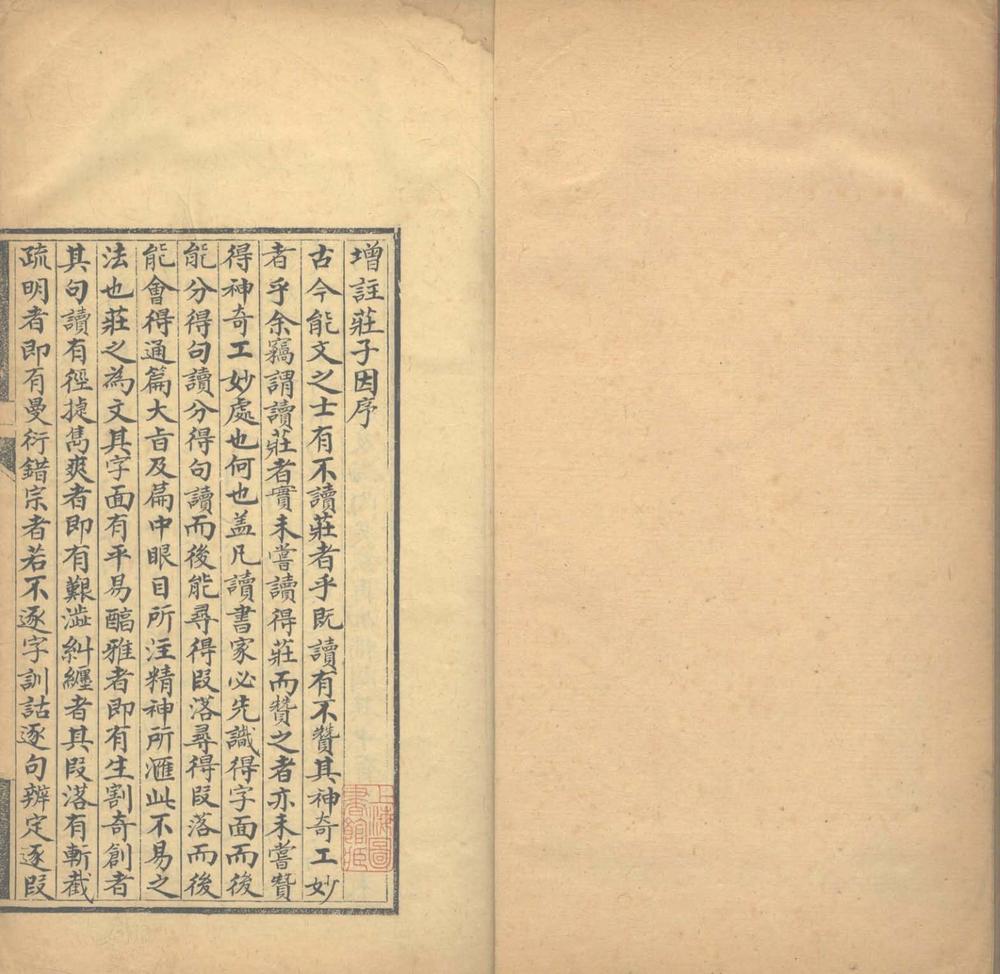 增註莊子因序
古今能文之士有不讀莊者乎既讀有不贊其神奇工妙
者乎余竊謂讀莊者實未嘗讀得莊而贊之者亦未嘗贊
得神奇工妙處也何也盖凡讀書家必先識得字面而後
能分得句讀分得句讀而後能尋得段落尋得段落而後
能會得通篇大旨及篇中眼目所注精神所滙此不易之
法也莊之為文其字面有平易醕雅者即有生割奇創者
其句讀有徑捷雋爽者即有艱澁糾纏者其段落有斬截
疏明者即有曼衍錯宗者若不逐字訓詁逐句辨定逐段
上海圖
書館